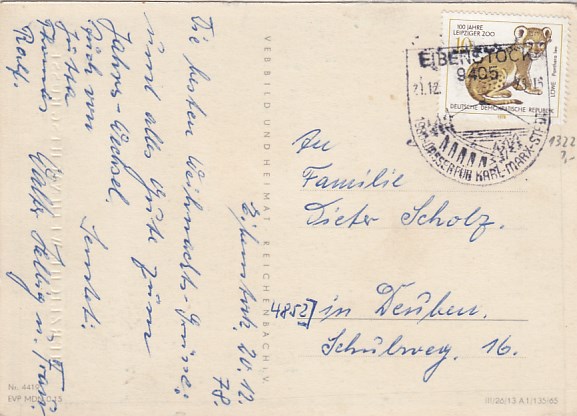 Eibenstock, 20.12.
78.
Die besten Weihnachts-Grüsse,
und alles Gute zum
Jahres-Wechsel.
Sendet:
Euch nun
Jutta
Rolf.
Walter Helbig u. Frau
VEB BILD UND HEIMAT REICHENBACH I. V.
Nr. 4419
EVP MDN 0,15
100 JAHRE
LEIPZIGER ZOO
10
LÖWE Panthera leo
DEUTSCHE DEMOKRATISCHE REPUBLIK
1978
EIBENSTOCK
9405
21.12.
KARL-MARX-STADT
1322
An
Familie
Dieter Scholz.
4852] in Deuben.
Schulweg. 16.
III/26/13 A 1/135/65